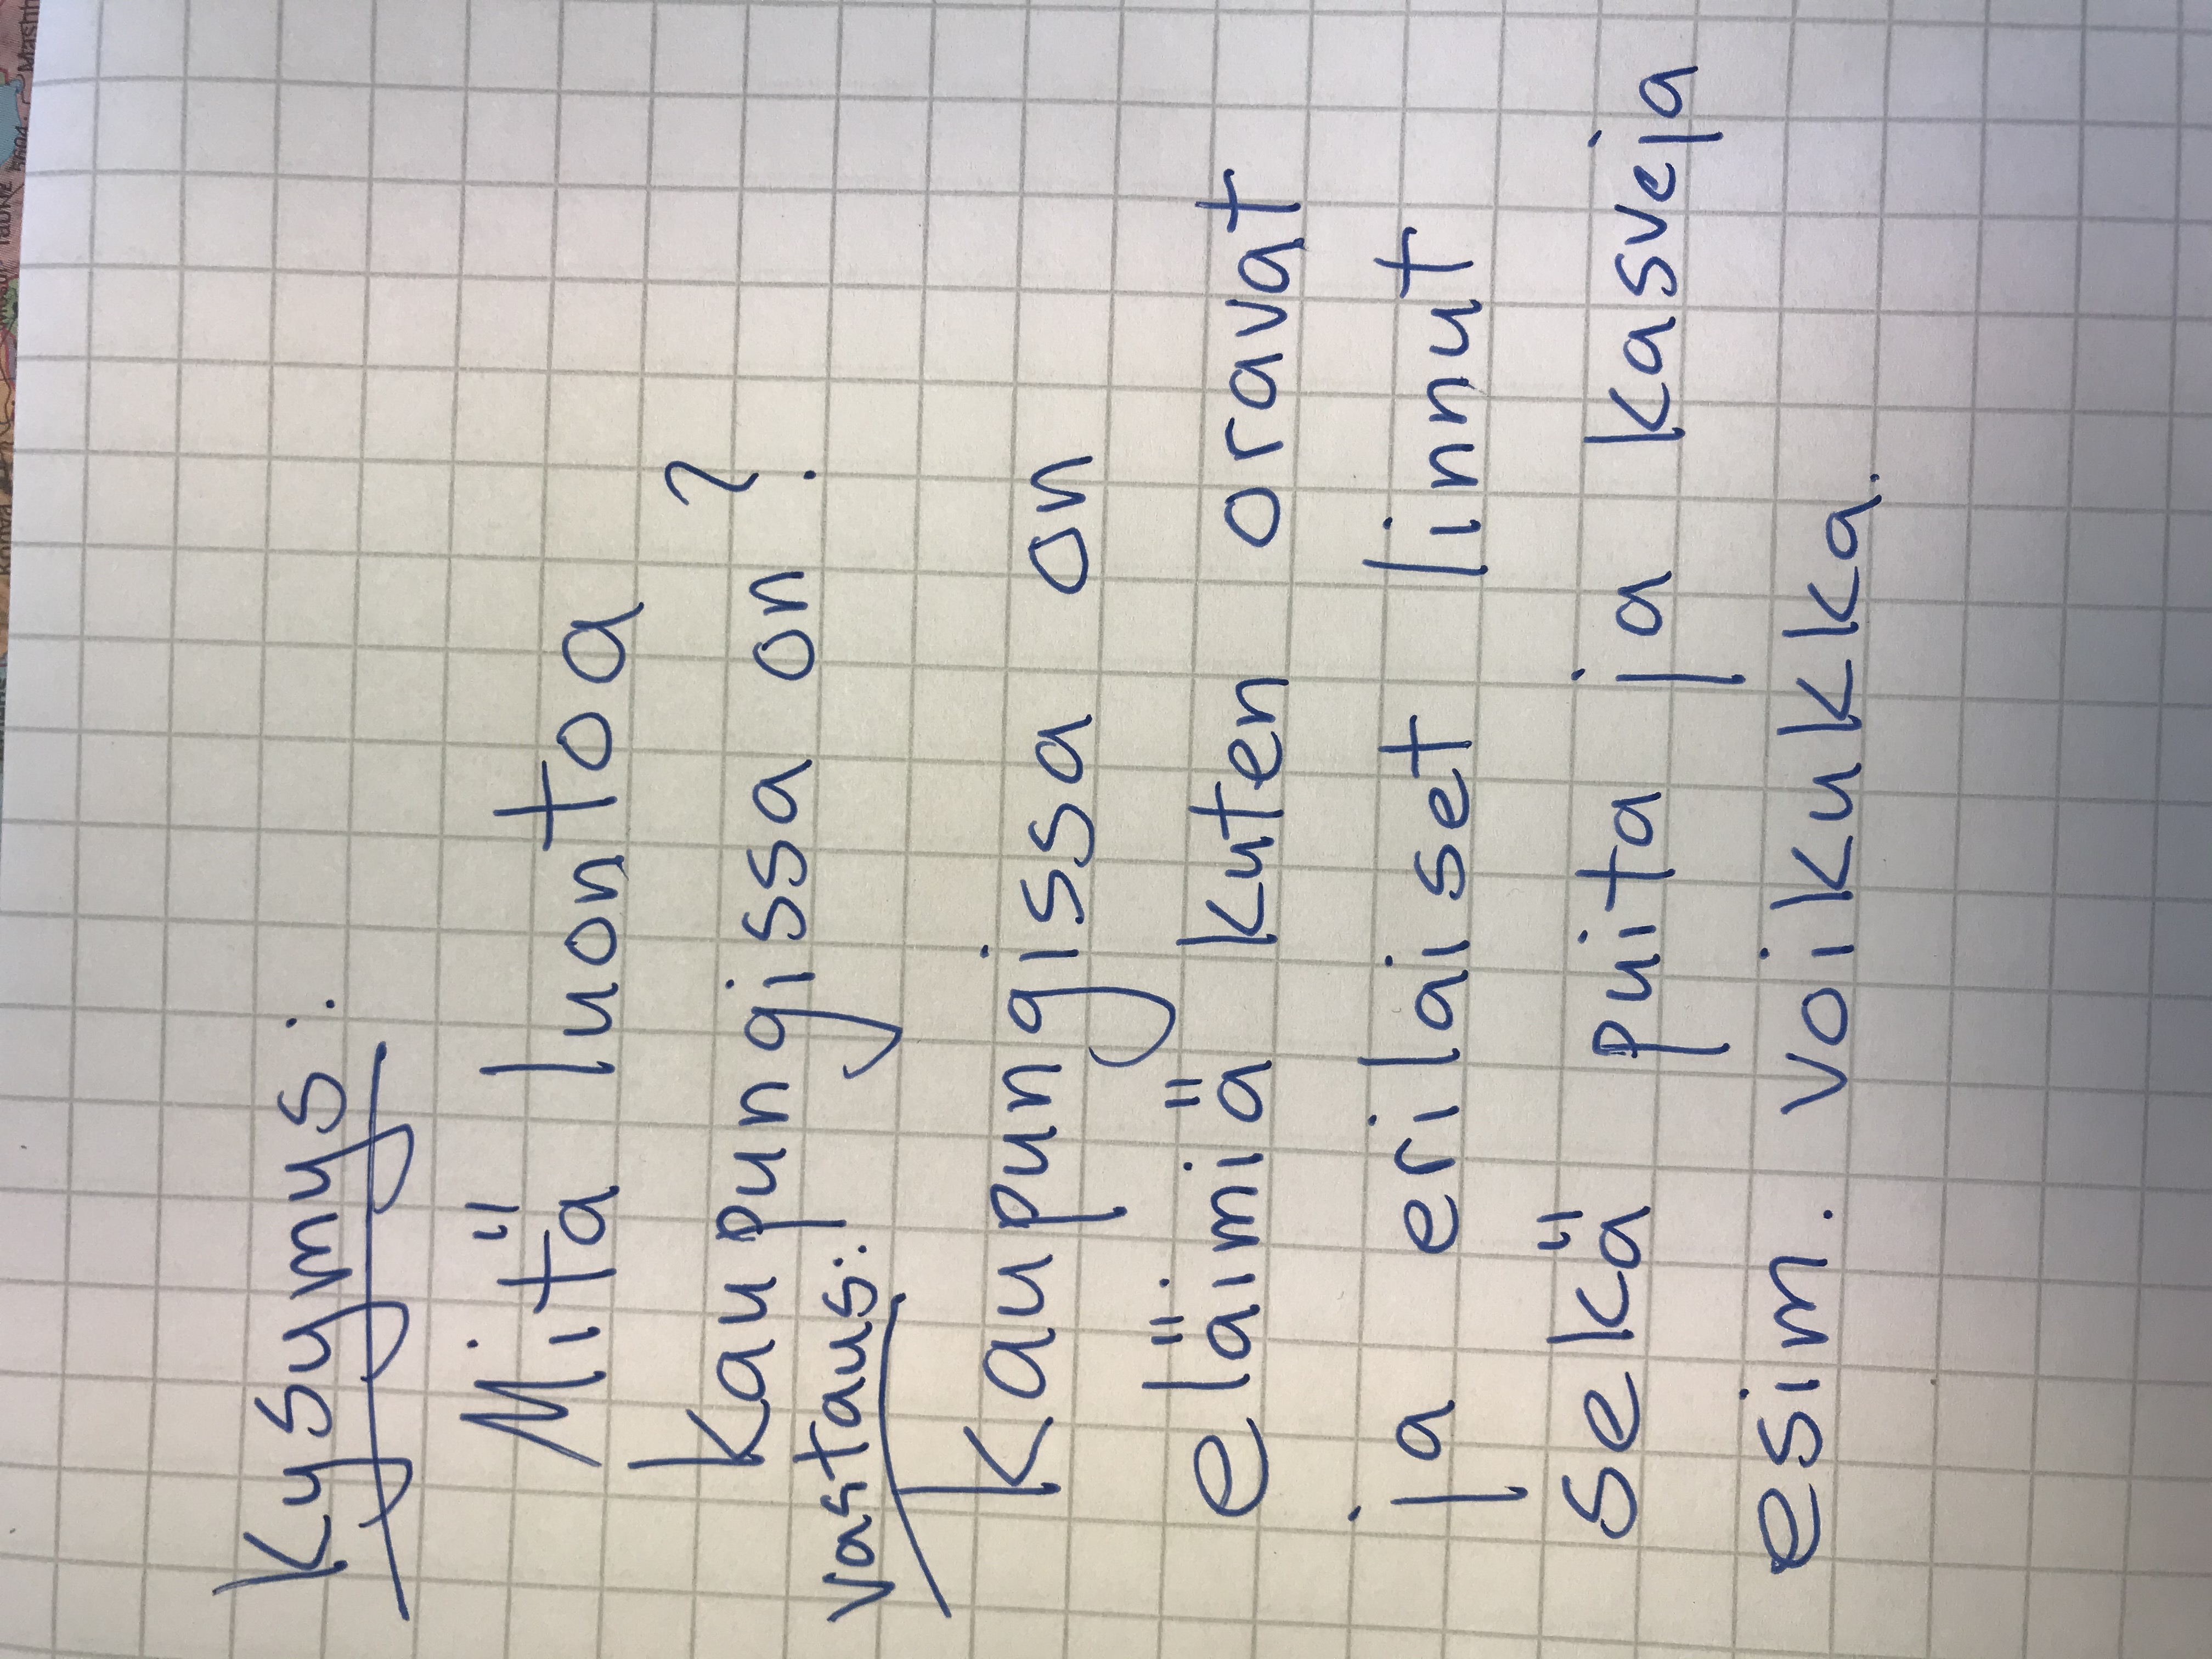 Kysymys:
Mitä luontoa
kaupungissa on?
vastaus:
Kaupungissa on
eläimiä kuten oravat
ja erilaiset linnut
sekä puita ja kasveja
esim. voikukka.